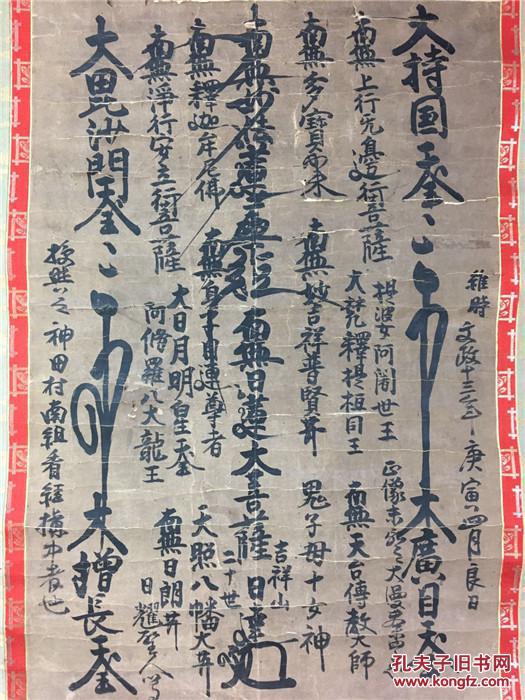 大持国天王
大廣目天王
維時文政十三年庚寅四月良日
南無上行无邊行菩薩
提婆 阿闍世王
大梵釋提桓因王
南無多寶如来
南無妙吉祥普賢菩薩
鬼子母十女神
南無天台傳教大師
南無妙法蓮華経
南無日蓮大菩薩
吉祥山
二十世
日
南無釋迦牟尼佛
南無身子目連尊者
天照八幡大菩薩
南無淨行安立行菩薩
大日月明星天
阿脩羅八大龍王
南無日朗菩薩
日耀
大毘沙門天王
大増長天王
授與之 神田村南組看経講中者也
孔夫子旧书网
www.kongfz.com